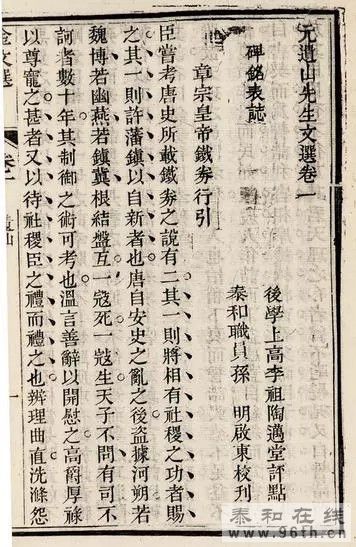 元遺山先生文選卷一
後學上高李祖陶邁堂評點
碑銘表誌
泰和職員孫 明啟東校刊
章宗皇帝鐵券行引
臣嘗考唐史所載鐵券之說有二其一則將相有社稷之功者賜
之其一則許藩鎮以自新者也唐自安史之亂之後盜據河朔若
魏博若幽燕若鎮冀根結盤互一寇死一寇生天子不問有司不
訶者數十年其制御之術可考也溫言善辭以開慰之高爵厚祿
以尊寵之甚者又以待社稷臣之禮而禮之也辨理曲直洗滌怨
文選
泰和在线
www.96th.cn